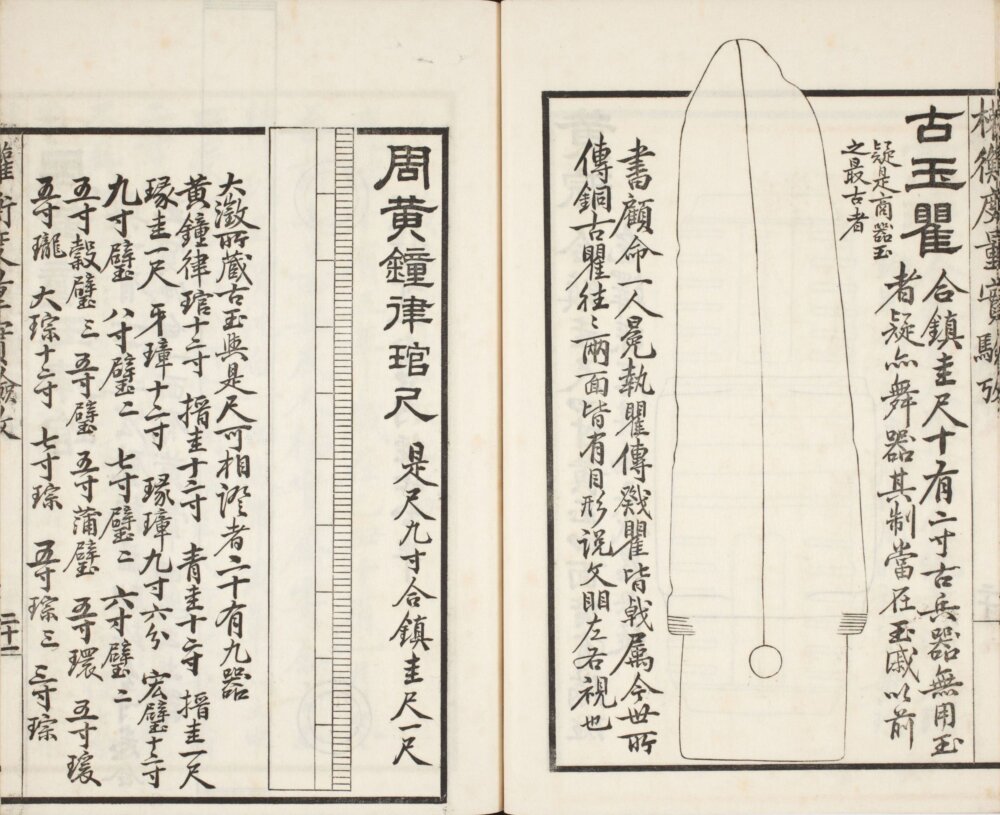 權衡度量實驗攷
古玉瞿
合鎮圭尺十有二寸古兵器無用玉
者疑亦舞器其制當在玉戚以前
疑是商器玉
之最古者
書顧命一人冕執瞿傳戣瞿皆戟属今世所
傳銅古瞿往〻兩面皆有目形说文䀠左右視也
周黃鐘律琯尺
是尺九寸合鎮圭尺一尺
大澂所藏古玉與是尺可相證者二十有九器
黃鐘律琯十二寸 搢圭十二寸 青圭十二寸 搢圭一尺
琢圭一尺 牙璋十二寸 琢璋九寸六分 宏璧十二寸
九寸璧 八寸璧二 七寸璧二 六寸璧二
五寸穀璧三 五寸璧 五寸蒲璧 五寸環 五寸瑗
五寸瓏 大琮十二寸 七寸琮 五寸琮三 三寸琮
權衡度量實驗攷
二十一